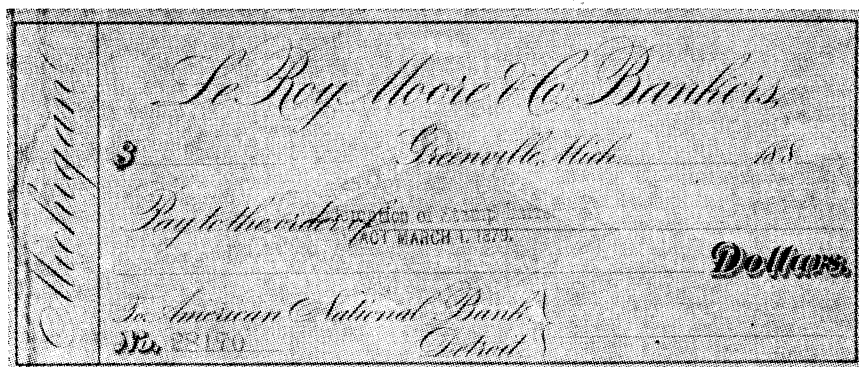 Michigan
Le Roy Moore & Co. Bankers,
$ Greenville, Mich. 188
Pay to the order of
of Stamp
ACT MARCH 1, 1879.
Dollars.
To American National Bank,
No. 22170 Detroit.